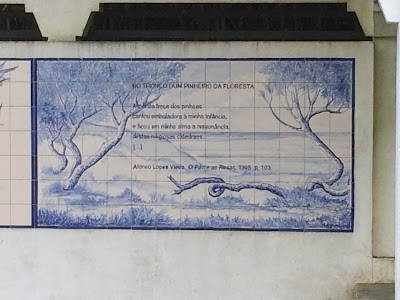 NO TRONCO DUM PINHEIRO DA FLORESTA
A infinita frase dos pinhaes
cantou embaladora á minha infância,
e ficou em minha alma a ressonância,
destas religiosas catedraes
[...]
Afonso Lopes Vieira, O Pão e as Rosas, 1908, p. 103.